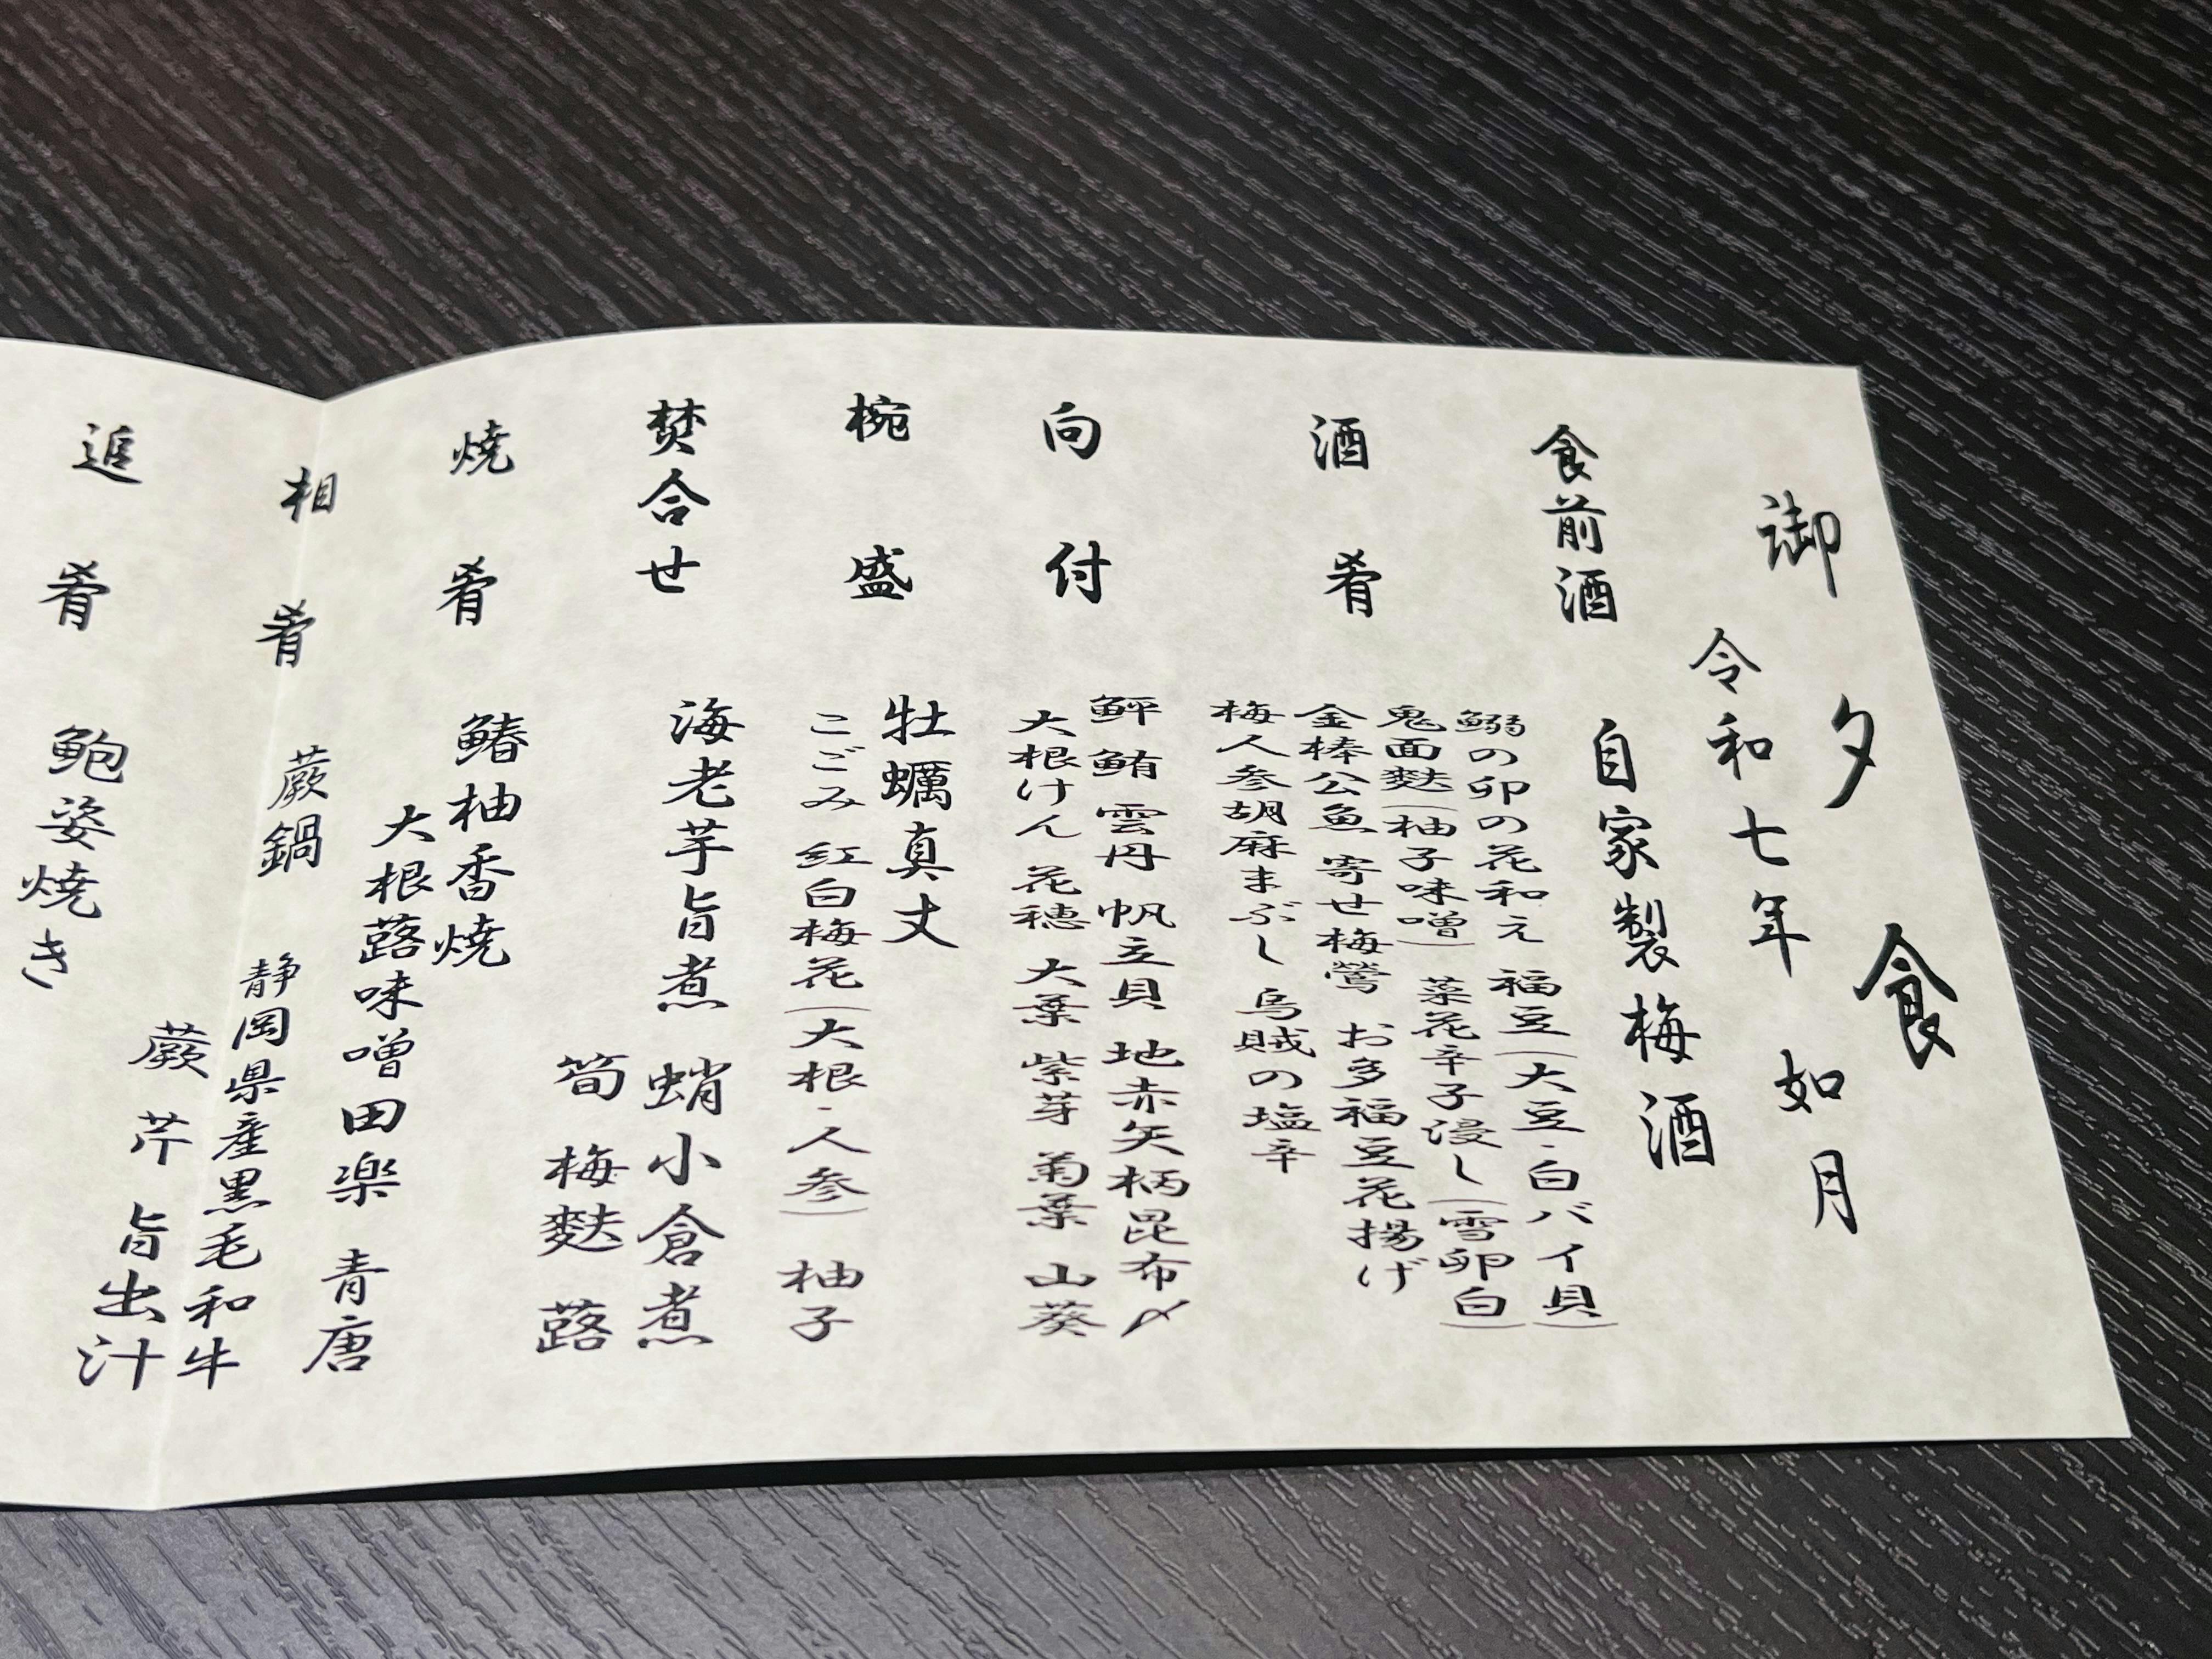 御夕食
令和七年 如月
食前酒 自家製梅酒
酒肴 鰯の卯の花和え 福豆(大豆・白バイ貝)
鬼面麩(柚子味噌) 菜花辛子浸し(雪卵白)
金棒公魚 寄せ梅鶯 お多福豆花揚げ
梅人参胡麻まぶし 烏賊の塩辛
向付 鮃 鮪 雲丹 帆立貝 地赤矢柄昆布〆
大根けん 花穂 大葉 紫芽 菊葉 山葵
椀盛 牡蠣真丈
こごみ 紅白梅花(大根・人参) 柚子
焚合せ 海老芋旨煮 蛸小倉煮
筍 梅麩 蕗
焼肴 鰆柚香焼
大根蕗味噌田楽 青唐
相肴 蕨鍋 静岡県産黒毛和牛
蕨 芹 旨出汁
追肴 鮑姿焼き